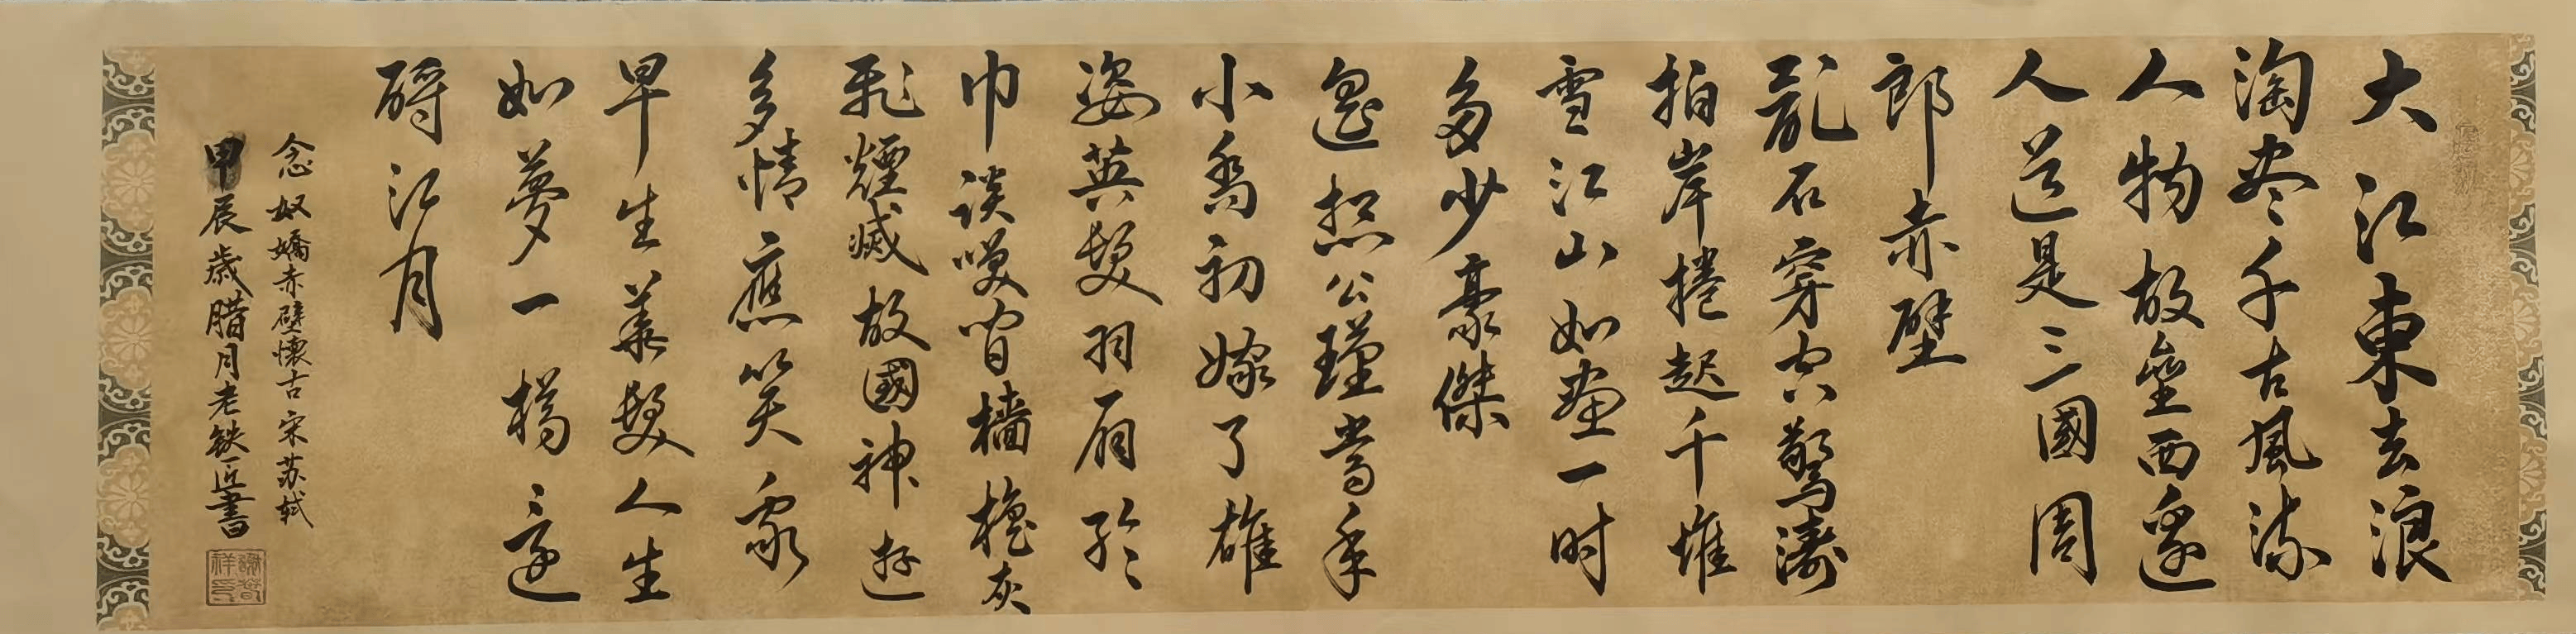 大江東去浪
淘尽千古風流
人物故壘西邊
人道是三國周
郎赤壁
亂石穿空驚濤
拍岸捲起千堆
雪江山如畫一时
多少豪傑
遙想公瑾當年
小喬初嫁了雄
姿英發羽扇綸
巾談笑間檣櫓灰
飛煙滅故國神遊
多情應笑我
早生華髮人生
如夢一樽還
酹江月
念奴嬌赤壁懷古宋苏轼
甲辰歲腊月老鉄匠書